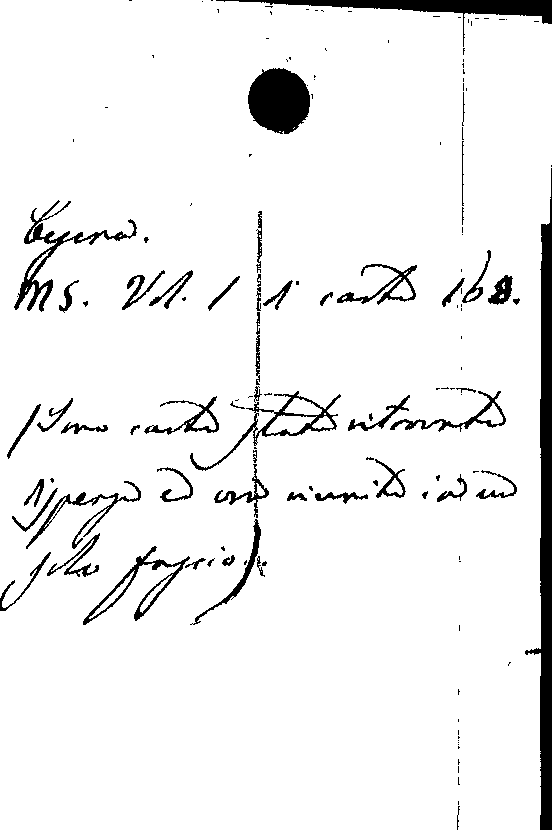 Cyera.
MS. Vol. 1 di carte 168.
Sono carte state ritrovate
disperse ed ora riunite in un
solo fascio.